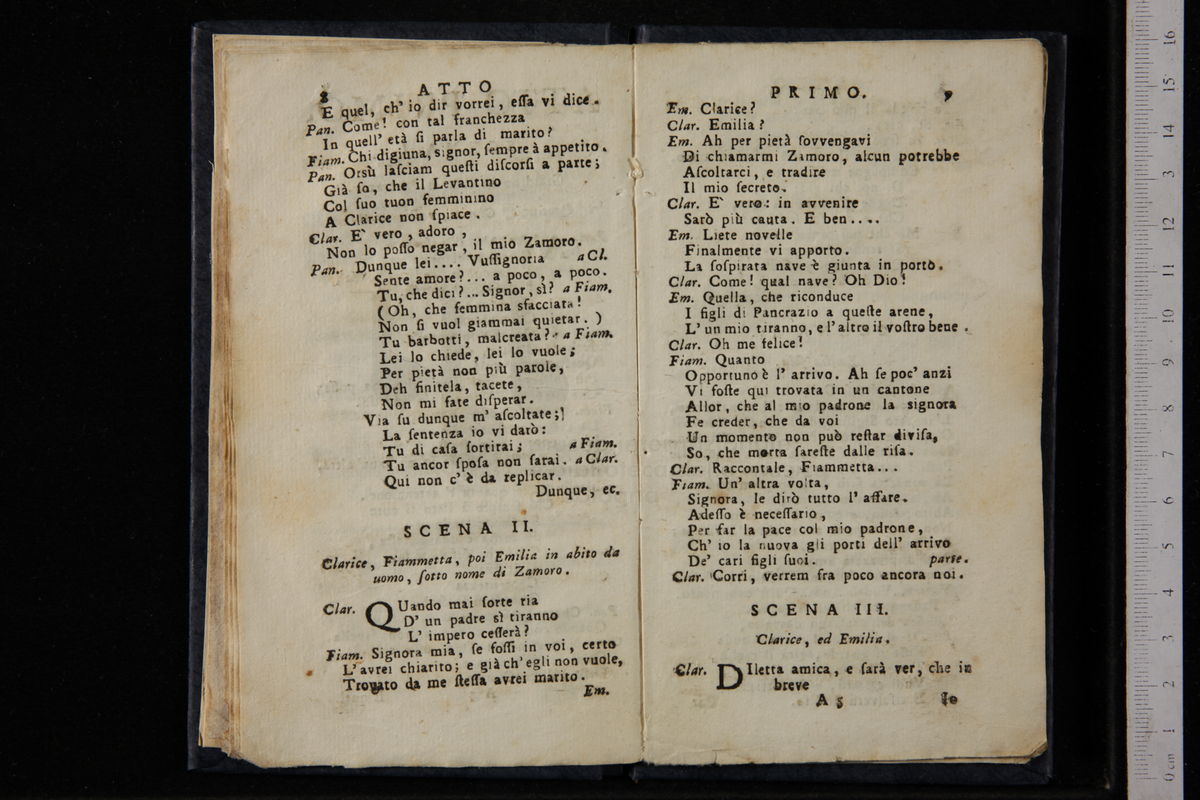 8
ATTO
E quel, ch' io dir vorrei, eſſa vi dice.
Pan. Come! con tal franchezza
In quell' età ſi parla di marito?
Fiam. Chi digiuna, signor, ſempre à appetito.
Pan. Orsù laſciam queſti diſcorſi a parte;
Già ſo, che il Levantino
Col ſuo tuon femminino
A Clarice non ſpiace.
Clar. E` vero, adoro,
Non lo poſſo negar, il mio Zamoro.
Pan. Dunque lei.... Vuſſignoria a Cl.
Sente amore?... a poco, a poco.
Tu, che dici?... Signor, sì? a Fiam.
(Oh, che femmina sfacciata!
Non ſi vuol giammai quietar.)
Tu barbotti, malcreata? a Fiam.
Lei lo chiede, lei lo vuole;
Per pietà non più parole,
Deh finitela, tacete,
Non mi fate diſperar.
Via ſu dunque m' aſcoltate;
La ſentenza io vi darò:
Tu di caſa ſortirai; a Fiam.
Tu ancor ſpoſa non ſarai. a Clar.
Qui non c' è da replicar.
Dunque, ec.
SCENA II.
Clarice, Fiammetta, poi Emilia in abito da
uomo, ſotto nome di Zamoro.
Clar. QUando mai ſorte ria
D' un padre sì tiranno
L' impero ceſſerà?
Fiam. Signora mia, ſe foſſi in voi, certo
L' avrei chiarito; e già ch' egli non vuole,
Trovato da me ſteſſa avrei marito.
Em.
PRIMO.
9
Em. Clarice?
Clar. Emilia?
Em. Ah per pietà ſovvengavi
Di chiamarmi Zamoro, alcun potrebbe
Aſcoltarci, e tradire
Il mio ſecreto.
Clar. E` vero: in avvenire
Sarò più cauta. E ben....
Em. Liete novelle
Finalmente vi apporto.
La ſoſpirata nave è giunta in porto.
Clar. Come! qual nave? Oh Dio!
Em. Quella, che riconduce
I figli di Pancrazio a queſte arene,
L' un mio tiranno, e l' altro il voſtro bene.
Clar. Oh me felice!
Fiam. Quanto
Opportuno è l' arrivo. Ah ſe poc' anzi
Vi foſte qui trovata in un cantone
Allor, che al mio padrone la signora
Fe creder, che da voi
Un momento non può reſtar diviſa,
So, che morta ſareſte dalle riſa.
Clar. Raccontale, Fiammetta...
Fiam. Un' altra volta,
Signora, le dirò tutto l' affare.
Adeſſo è neceſſario,
Per far la pace col mio padrone,
Ch' io la nuova gli porti dell' arrivo
De' cari figli ſuoi. parte.
Clar. Corri, verrem fra poco ancora noi.
SCENA III.
Clarice, ed Emilia.
Clar. DIletta amica, e ſarà ver, che in
breve
A 5
Io
0 cm 1 2 3 4 5 6 7 8 9 10 11 12 3 14 15 16